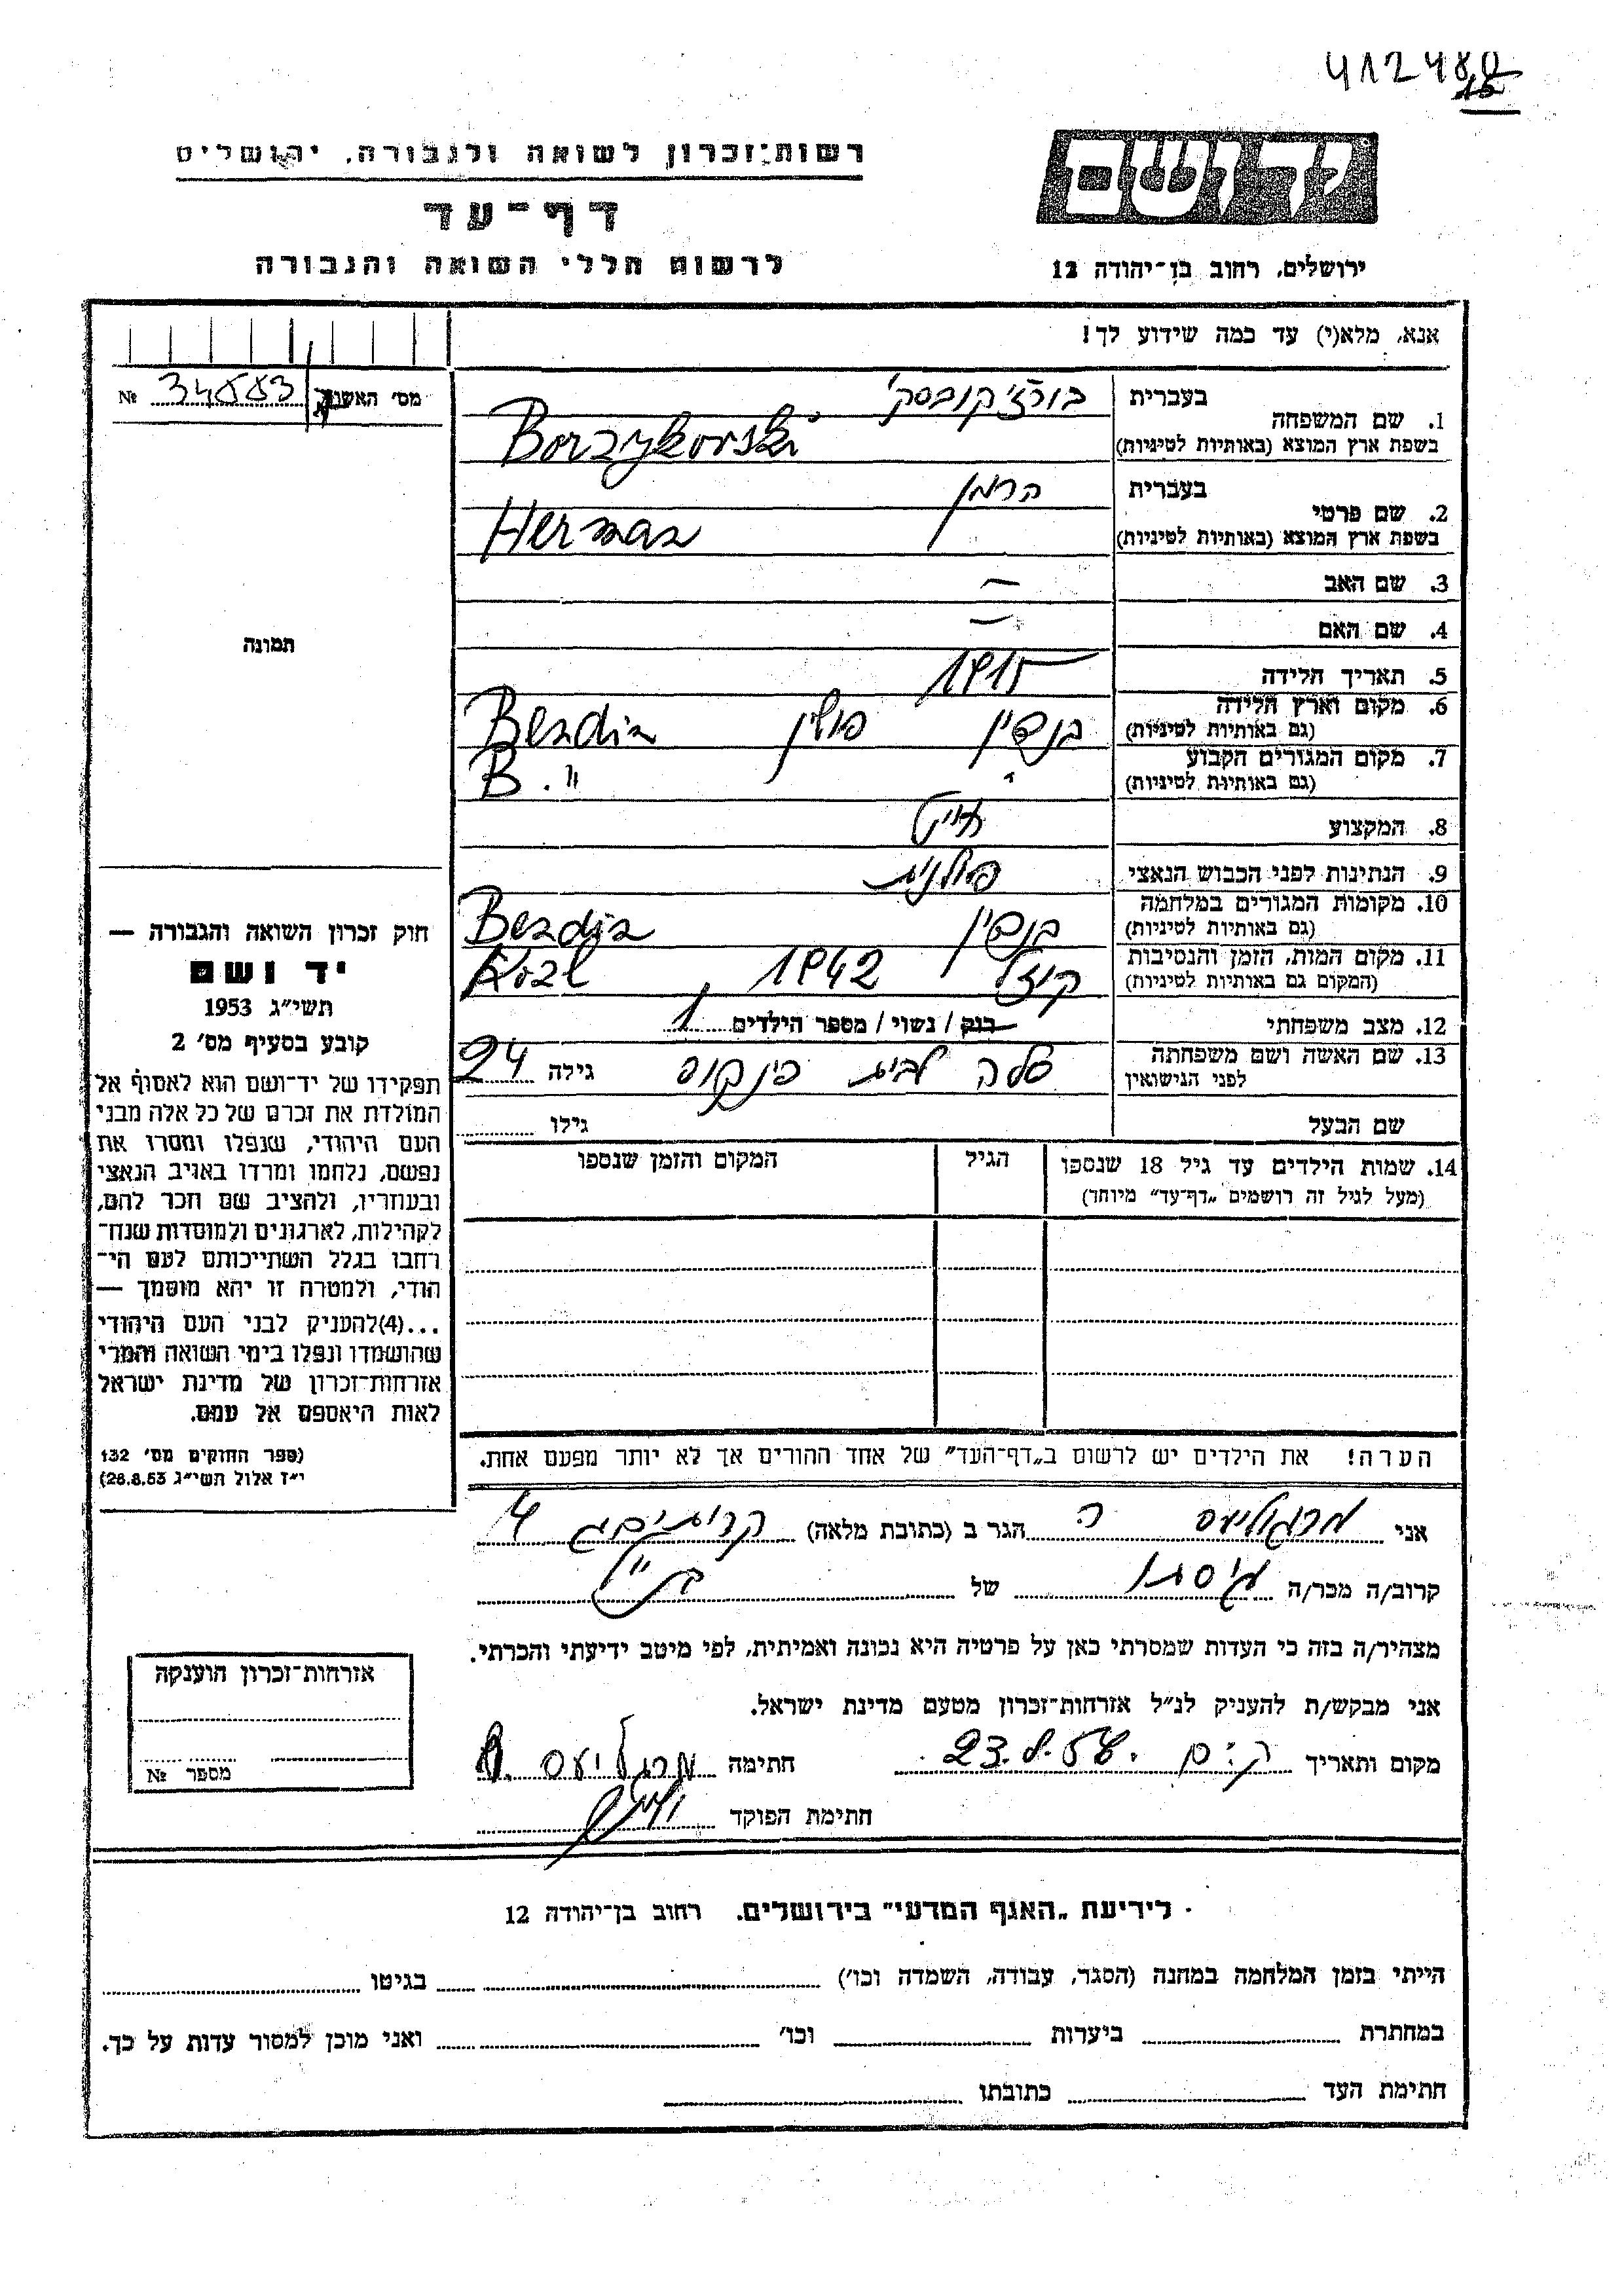 412480
15
רשות־זכרון לשואה ולגבורה, ירושלים
יד ושם
דף־עד
לרשום חללי השואה והגבורה
ירושלים, רחוב בן־יהודה 12
אנא, מלא(י) עד כמה שידוע לך!
מס׳ האשה № 34553
בעברית בורז׳יקובסקי
1. שם המשפחה
בשפת ארץ המוצא (באותיות לטיניות) Borzykovski
בעברית הרמן
2. שם פרטי
בשפת ארץ המוצא (באותיות לטיניות) Herman
3. שם האב —
4. שם האם —
5. תאריך הלידה 1915
6. מקום וארץ הלידה
(גם באותיות לטיניות) בנדין פולין Bendin
7. מקום המגורים הקבוע
(גם באותיות לטיניות) " B. "
8. המקצוע חייט
9. הנתינות לפני הכבוש הנאצי פולנית
10. מקומות המגורים במלחמה
(גם באותיות לטיניות) בנדין Bendin
11. מקום המות, הזמן והנסיבות
(המקום גם באותיות לטיניות) קוזל 1942 Kozl
12. מצב משפחתי רווק / נשוי / מספר הילדים 1
13. שם האשה ושם משפחתה
לפני הנישואין סלה לבית פינקוס גילה 24
שם הבעל גילו
14. שמות הילדים עד גיל 18 שנספו הגיל המקום והזמן שנספו
(מעל לגיל זה רושמים „דף־עד” מיוחד)
הערה! את הילדים יש לרשום ב„דף־העד” של אחד ההורים אך לא יותר מפעם אחת.
תמונה
חוק זכרון השואה והגבורה —
יד ושם
תשי״ג 1953
קובע בסעיף מס׳ 2
תפקידו של יד־ושם הוא לאסוף אל
המולדת את זכרם של כל אלה מבני
העם היהודי, שנפלו ומסרו את
נפשם, נלחמו ומרדו באויב הנאצי
ובעוזריו, ולהציב שם וזכר להם,
לקהילות, לארגונים ולמוסדות שנח־
רבו בגלל השתייכותם לעם הי־
הודי, ולמטרה זו יהא מוסמך —
...(4)להעניק לבני העם היהודי
שהושמדו ונפלו בימי השואה והמרי
אזרחות־זכרון של מדינת ישראל
לאות היאספם אל עמם.
(ספר החוקים מס׳ 132
י״ז אלול תשי״ג 28.8.53)
אני מרגוליעס ה הגר ב (כתובת מלאה) 4
קרוב/ה מכר/ה גיסתו של הנ״ל
מצהיר/ה בזה כי העדות שמסרתי כאן על פרטיה היא נכונה ואמיתית, לפי מיטב ידיעתי והכרתי.
אני מבקש/ת להעניק לנ״ל אזרחות־זכרון מטעם מדינת ישראל.
מקום ותאריך 23. חתימה מרגליעס
חתימת הפוקד
אזרחות־זכרון הוענקה
מספר №
לידיעת „האגף המדעי” בירושלים. רחוב בן־יהודה 12
הייתי בזמן המלחמה במחנה (הסגר, עבודה, השמדה וכו׳) בגיטו
במחתרת ביערות וכו׳ ואני מוכן למסור עדות על כך.
חתימת העד כתובתו